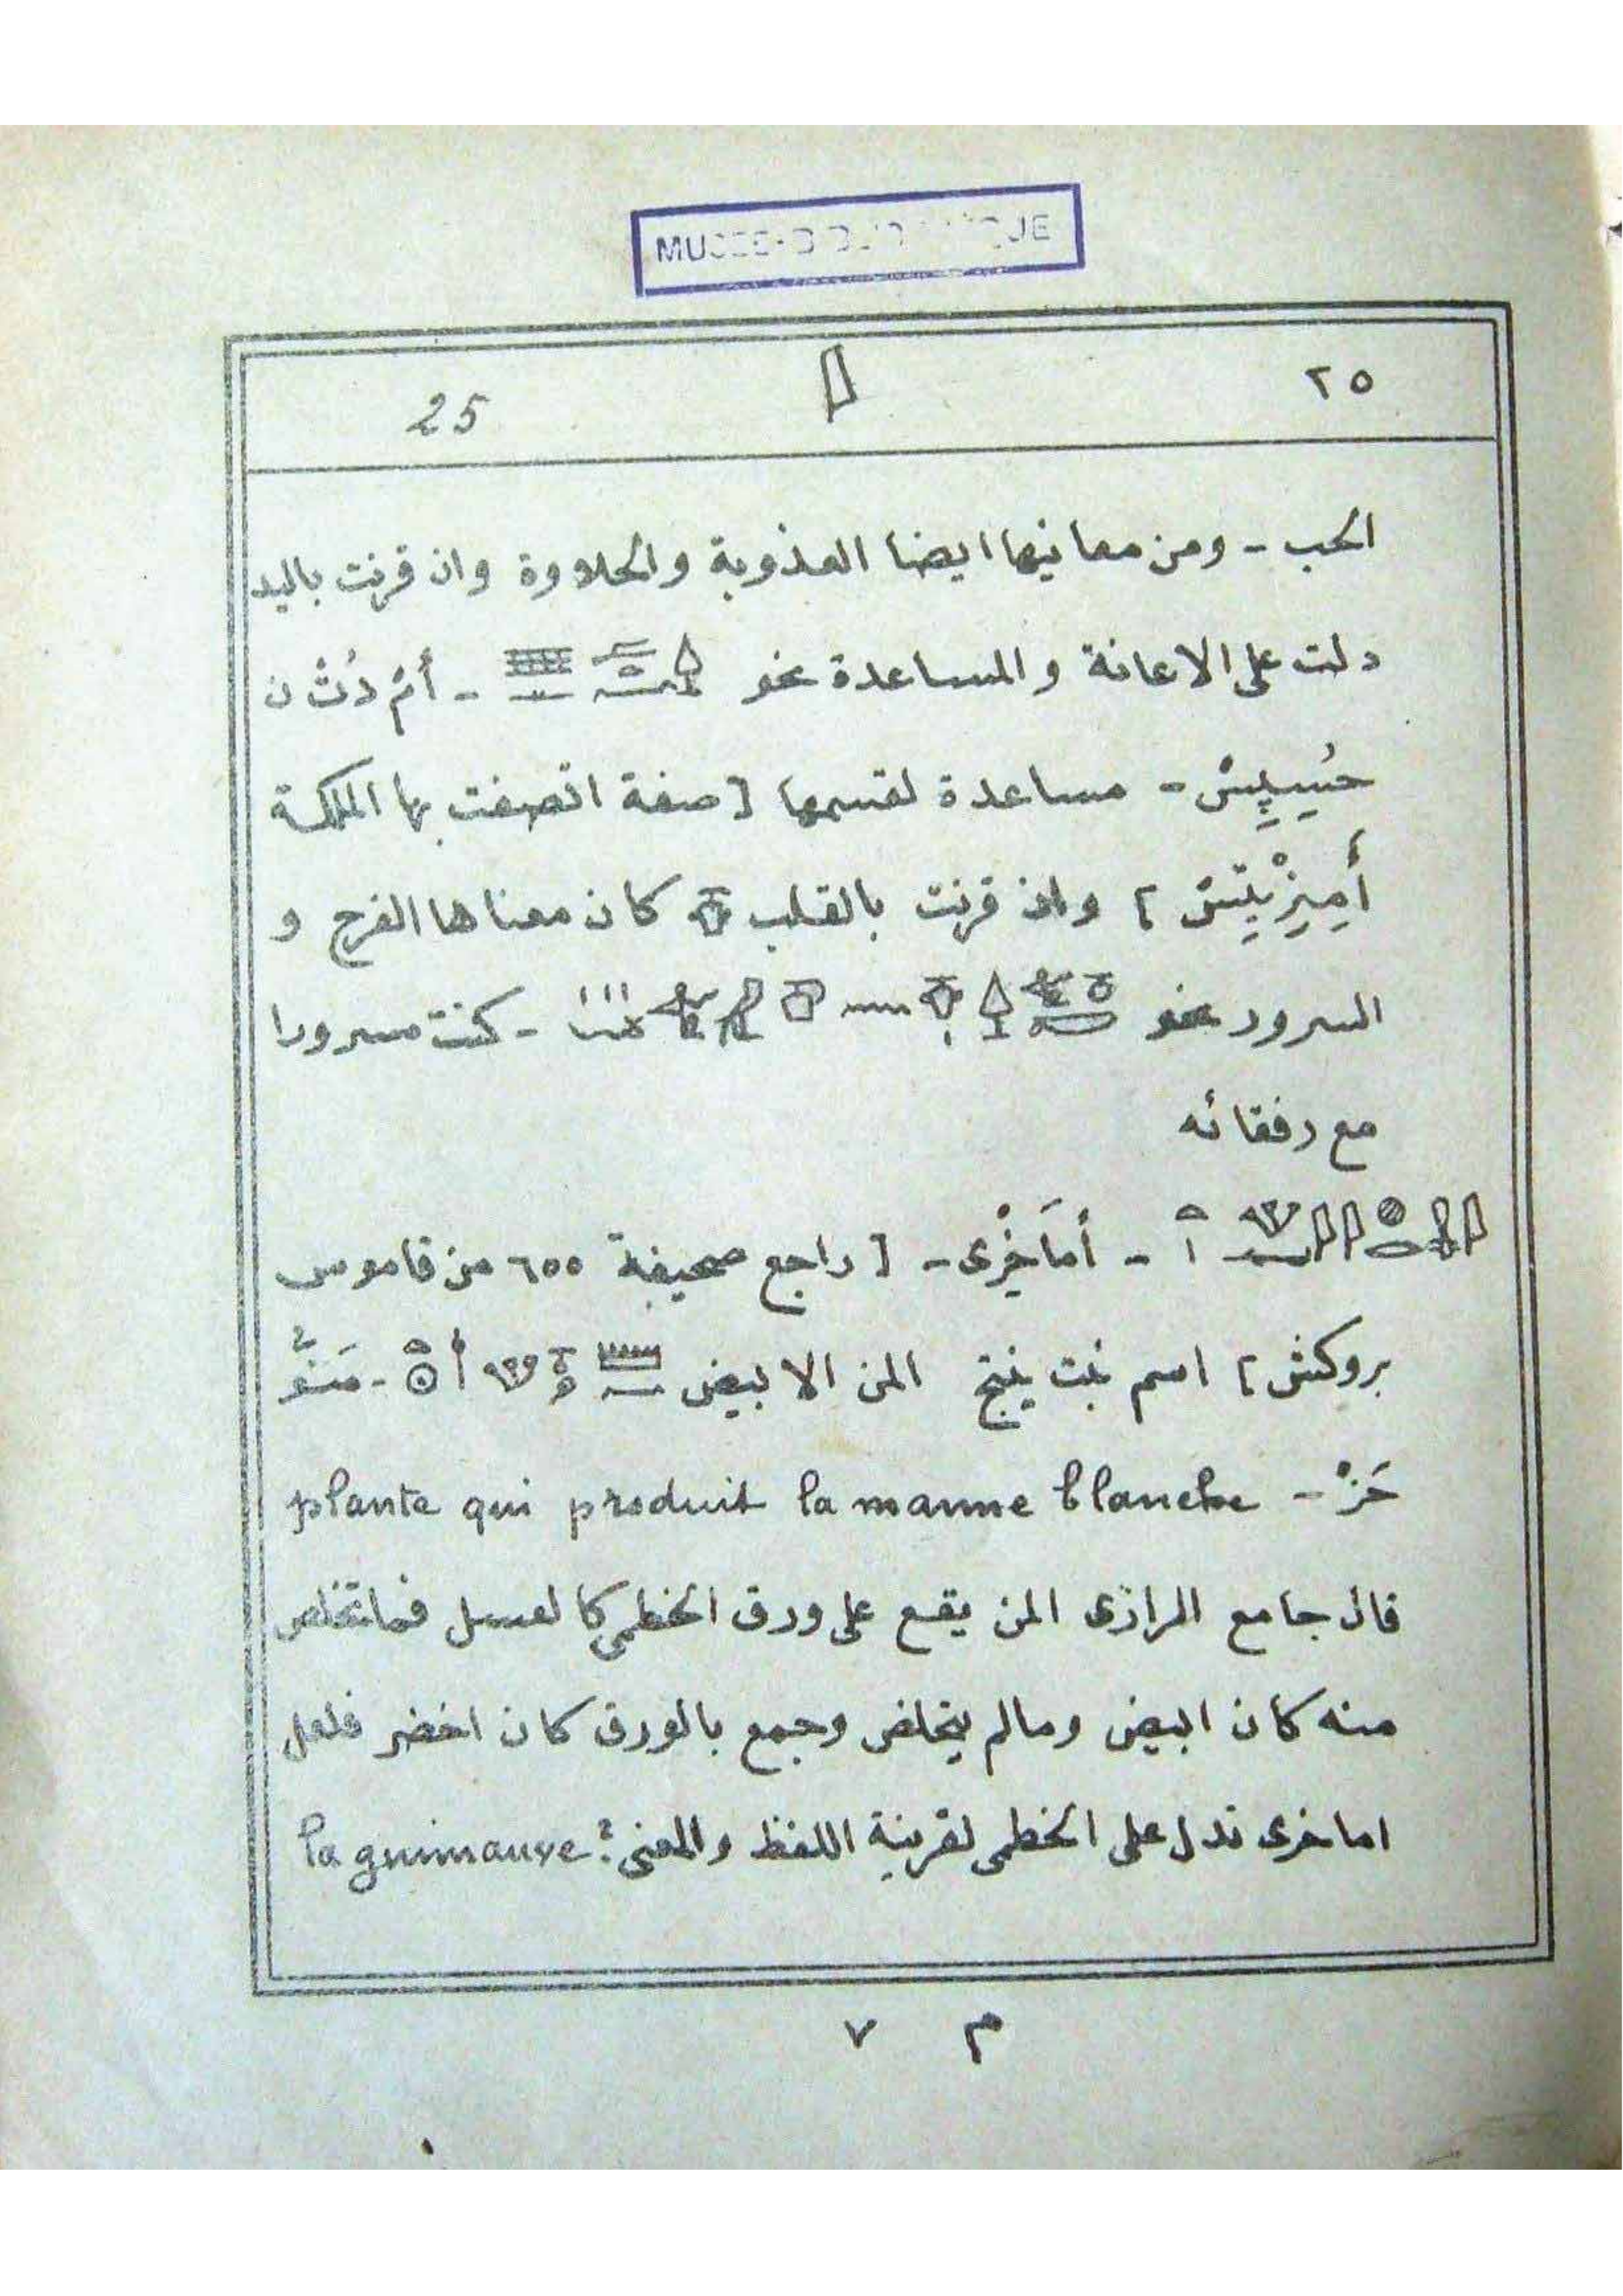 MUSEE-BIBLIOTHEQUE
٢٥ 25
الحب - ومن معانيها ايضا العذوبة والحلاوة وان قرنت باليد
دلت على الاعانة والمساعدة نحو - أمْ دُتْ ن
حسِپِسْ - مساعدة لقسمها [ صفة اتصفت بها الملكة
أَمِيزِيتِسْ ] وان قرنت بالقلب كان معناها الفرح و
السرور نحو - كنت مسرورا
مع رفقائه
- أمَاخِرْى - [ راجع صحيفة ٦٥٥ من قاموس
بروكش ] اسم نبت ينتج المن الابيض - مَنّو
حَزْ - plante qui produit la manne blanche
قال جامع الرازى المن يقع على ورق الخطمى كالعسل فما تخلص
منه كان ابيض ومالم يتخلص وجمع بالورق كان اخضر فلعل
اماخرى تدل على الخطمى لقرينة اللفظ والمعنى ? la guimauve
م ٧